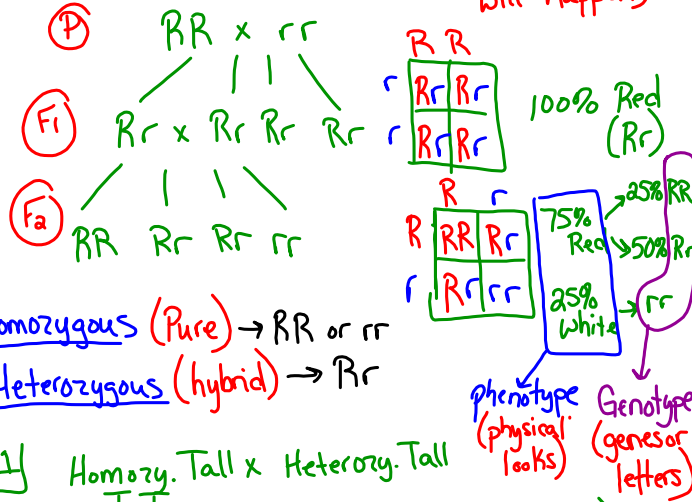 P RR x rr
R R
r Rr Rr
r Rr Rr
100% Red
(Rr)
F1 Rr x Rr Rr Rr
F2 RR Rr Rr rr
R r
R RR Rr
r Rr rr
75% Red
25% White
25% RR
50% Rr
rr
omozygous (Pure) → RR or rr
Heterozygous (hybrid) → Rr
Phenotype
(physical looks)
Genotype
(genes or
letters)
1 Homozy. Tall x Heterozy. Tall